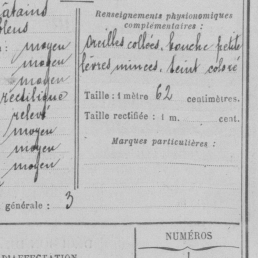 châtains
bleus
moyen
moyen
moyen
rectiligne
relevé
moyen
moyen
moyen
générale : 3
Renseignements physionomiques
complémentaires :
oreilles collées, bouche petite
lèvres minces, teint coloré
Taille : 1 mètre 62 centimètres.
Taille rectifiée : 1 m. cent.
Marques particulières :
NUMÉROS
D'AFFECTATION